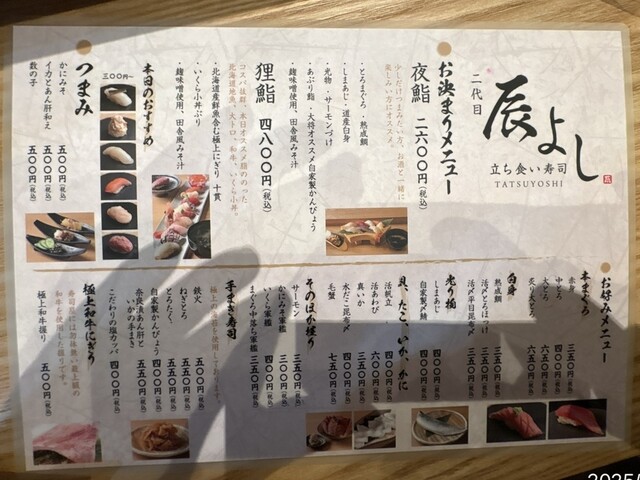 二代目
辰よし
立ち食い寿司
TATSUYOSHI
お決まりメニュー
夜鮨 二六〇〇円(税込)
少しだけつまみたい方、お酒と一緒に
楽しみたい方にオススメ。
・とろまぐろ・熟成鯛
・しまあじ・道産白身
・光物・サーモンづけ
・あぶり鮨・大将オススメ自家製かんぴょう
・麹味噌使用、田舎風みそ汁
狸鮨 四八〇〇円(税込)
コスパ抜群、本日オススメ脂ののった、
北海道地魚、大トロ、和牛、いくら小丼。
・北海道産鮮魚含む極上にぎり 十貫
・いくら小丼ぶり
・麹味噌使用、田舎風みそ汁
本日のおすすめ
三〇〇円〜
つまみ
かにみそ 五〇〇円(税込)
イカとあん肝和え 五〇〇円(税込)
数の子 五〇〇円(税込)
お好みメニュー
本まぐろ
赤身 三五〇円(税込)
中とろ
大とろ 六五〇円(税込)
炙り大とろ 六五〇円(税込)
白身
熟成鯛 三五〇円(税込)
活〆とろほっけ 三五〇円(税込)
活〆平目昆布〆
光り物
しまあじ 四〇〇円(税込)
自家製〆鯖 四〇〇円(税込)
貝、たこ、いか、かに
活帆立
活あわび 六〇〇円(税込)
真いか
水だこ昆布〆 四〇〇円(税込)
毛蟹 七五〇円(税込)
そのほか握り
サーモン
かにみそ軍艦 三〇〇円(税込)
いくら軍艦
まぐろ中落ち軍艦 三五〇円(税込)
手まき寿司
極上の海苔を使用しております。
鉄火 五〇〇円(税込)
ねぎとろ 五五〇円(税込)
とろたく 五五〇円(税込)
自家製かんぴょう 四〇〇円(税込)
奈良漬あん肝と
いかの手まき 五五〇円(税込)
こだわりの塩カッパ 四〇〇円(税込)
極上和牛にぎり
和牛を使用した握りです。
極上和牛握り 五〇〇円(税込)